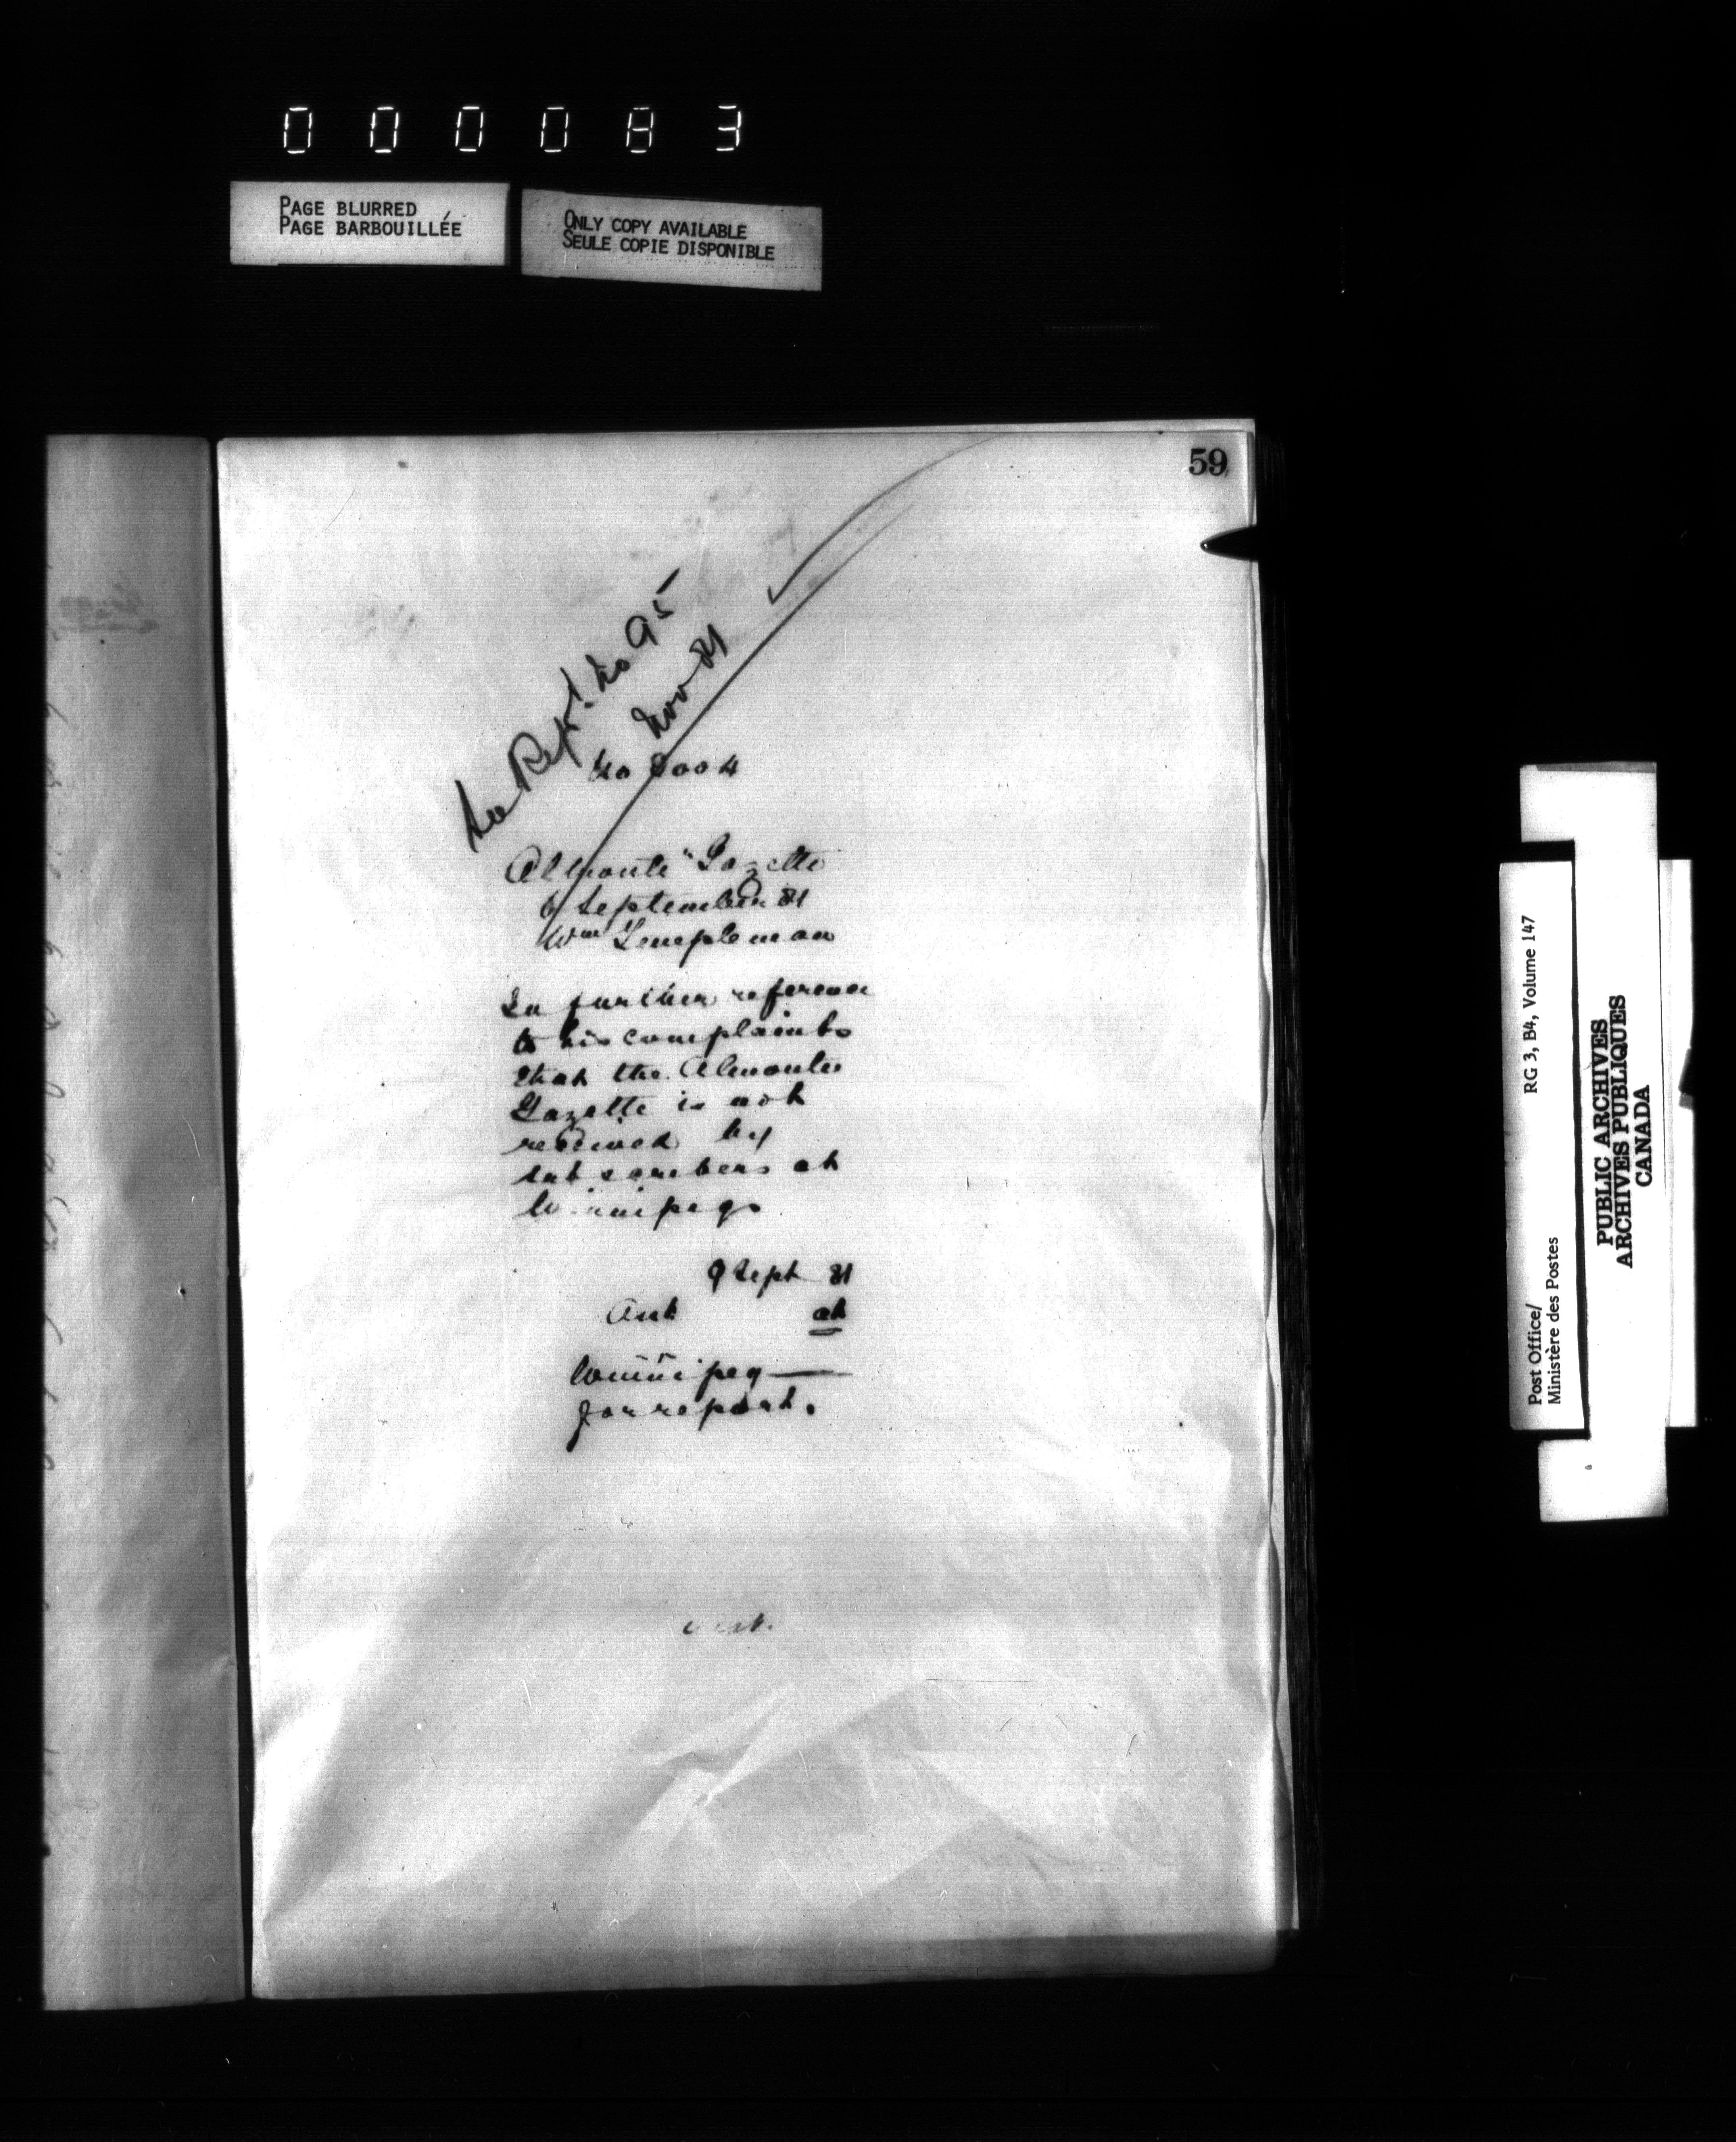 000083
PAGE BLURRED
PAGE BARBOUILLÉE
ONLY COPY AVAILABLE
SEULE COPIE DISPONIBLE
59
See Rept. No 95
Nov 81
No 9004
Almonte "Gazette
6 September 81
Wm Templeman
In further reference
to his complaints
that the Almonte
Gazette is not
received by
subscribers at
Winnipeg
9 Sept 81
at
Winnipeg —
for report.
Post Office/
Ministère des Postes
RG 3, B4, Volume 147
PUBLIC ARCHIVES
ARCHIVES PUBLIQUES
CANADA